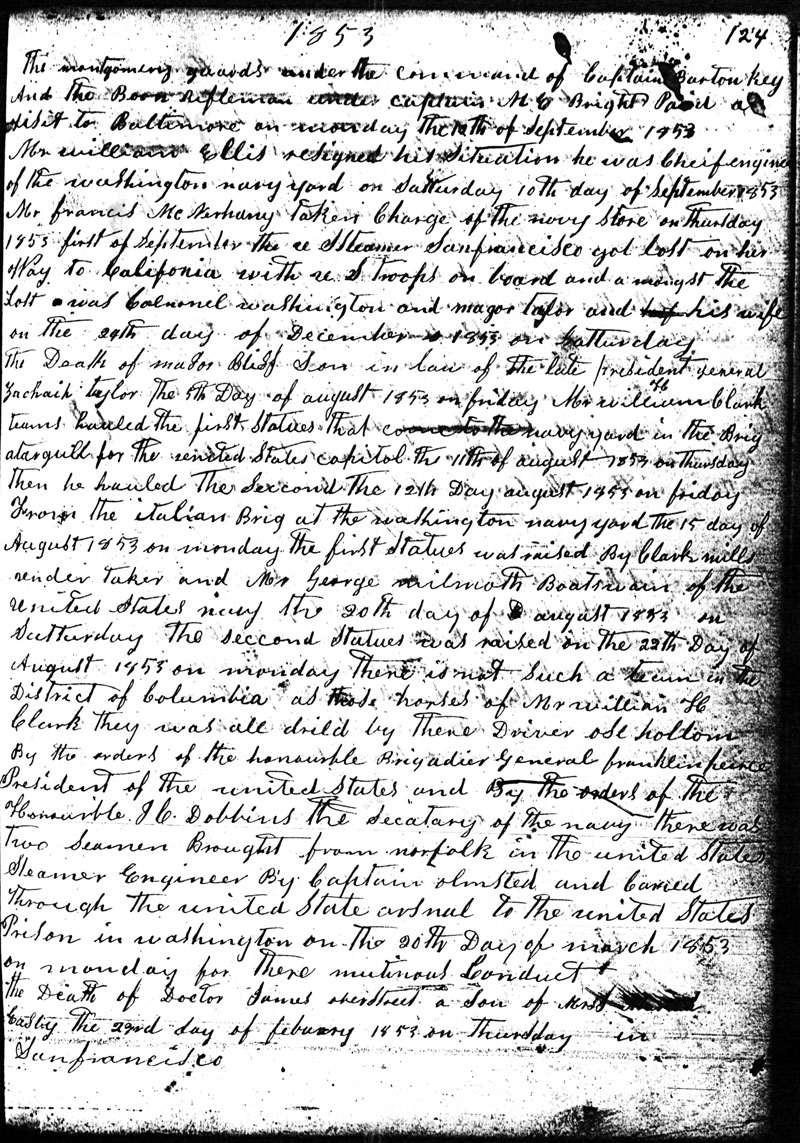 1853 124
The montgomery guards under the command of Captain Barton Key
And the Boon Rifleman under captain M C Bright Paid a
visit to Baltimore on monday the 12th of September 1853
Mr william Ellis resigned his situation he was Cheif engine
of the washington navy yard on Satturday 10th day of September 1853
Mr francis McNerhany taken Charge of the navy store on Thursday
1853 first of September the u Steamer Sanfrancisco got lost on her
Way to California with u S troops on board and amongst the
Lost was Colnonel washington and magor taylor and his wife
on the 24th day of December 1853 on Satturday
The Death of major Bliss Son in law of the late president general
Zachaih taylor the 5th Day of august 1853 on friday Mr william H Clark
teams hauled the first Statues that come to the navy yard in the Brig
atarguill for the united States capitol the 11th of august 1853 on thursday
then he hauled the Second the 12th Day august 1853 on friday
From the italian Brig at the washington navy yard the 15 day of
August 1853 on monday the first Statues was raised By Clark mills
under taker and Mr George wilmoth Boatswain of the
united States navy the 20th day of august 1853 on
Satturday the second Statues was raised on the 22th Day of
August 1853 on monday there is not Such a team in the
District of Columbia as those horses of Mr william H
Clark they was all drild by there Driver ose holtom
By the orders of the honourble Brigadier General franklin peirce
President of the united States and By the orders of the
Honourble J C. Dobbins the Secatary of the navy there was
two Seamen Brought from norfolk in the united States
Steamer Engineer By Captain olmsted and Caried
through the united State arsnal to the united States
Prison in washington on the 20th Day of march 1853
on monday for there mutinous Conduct
the Death of Doctor James overstreet a Son of Mrs
Easby the 23rd day of febuary 1853 on thursday in
Sanfrancisco